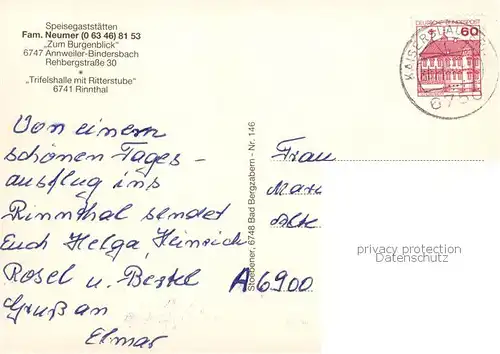 Speisegaststätten
Fam. Neumer (0 63 46) 81 53
„Zum Burgenblick"
6747 Annweiler-Bindersbach
Rehbergstraße 30
*
„Trifelshalle mit Ritterstube"
6741 Rinnthal
Von einem
schönen Tages-
ausflug ins
Rinnthal sendet
Euch Helga, Heinrich
Rosel u. Bestel
Gruß an
Elmar
Stoebener, 6748 Bad Bergzabern - Nr. 146
DEUTSCHE BUNDESPOST
60
KAISERSLAUTERN
6750
Frau
A6900
privacy protection
Datenschutz